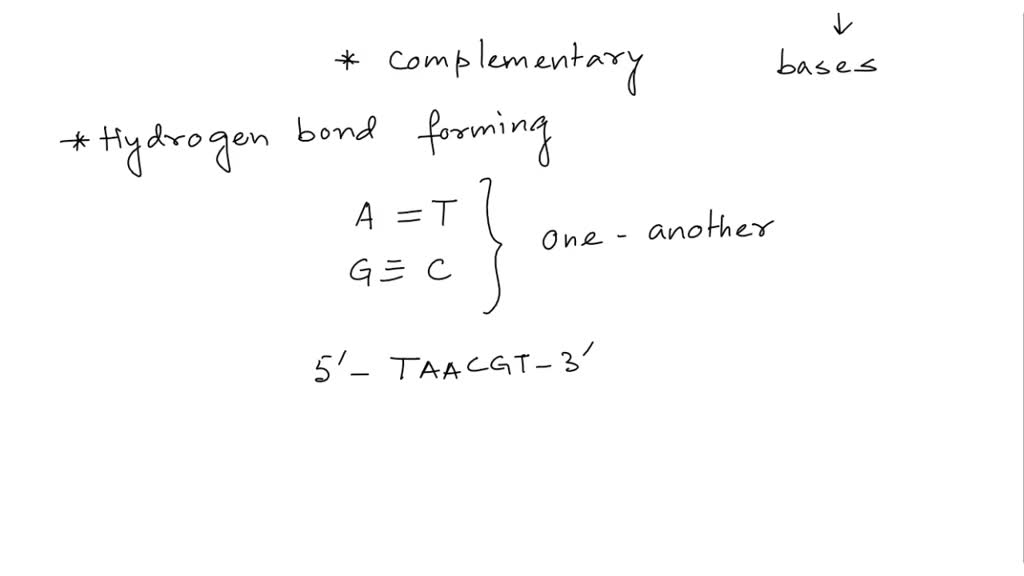 ↓
* Complementary bases
* Hydrogen bond forming
A = T
G ≡ C } one - another
5′ - TAACGT - 3′